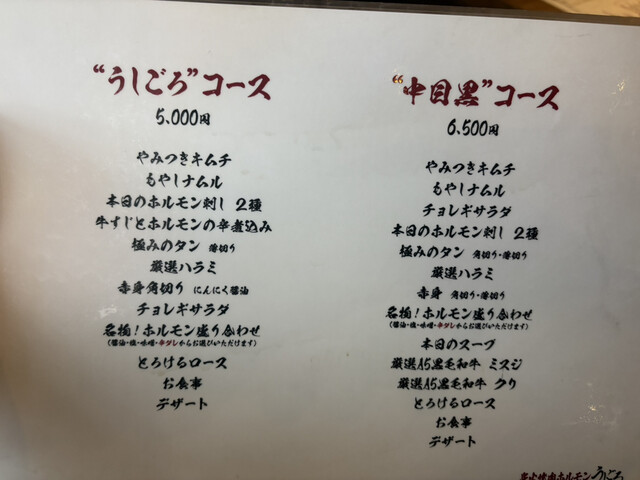 “うしごろ”コース
5,000円
やみつきキムチ
もやしナムル
本日のホルモン刺し 2種
牛すじとホルモンの辛煮込み
極みのタン 薄切り
厳選ハラミ
赤身角切り にんにく醤油
チョレギサラダ
名物！ホルモン盛り合わせ
(醤油・塩・味噌・辛ダレからお選びいただけます)
とろけるロース
お食事
デザート
“中目黒”コース
6,500円
やみつきキムチ
もやしナムル
チョレギサラダ
本日のホルモン刺し 2種
極みのタン 角切り・薄切り
厳選ハラミ
赤身 角切り・薄切り
名物！ホルモン盛り合わせ
(醤油・塩・味噌・辛ダレからお選びいただけます)
本日のスープ
厳選A5黒毛和牛 ミスジ
厳選A5黒毛和牛 クリ
とろけるロース
お食事
デザート
炭火焼肉ホルモン うしごろ